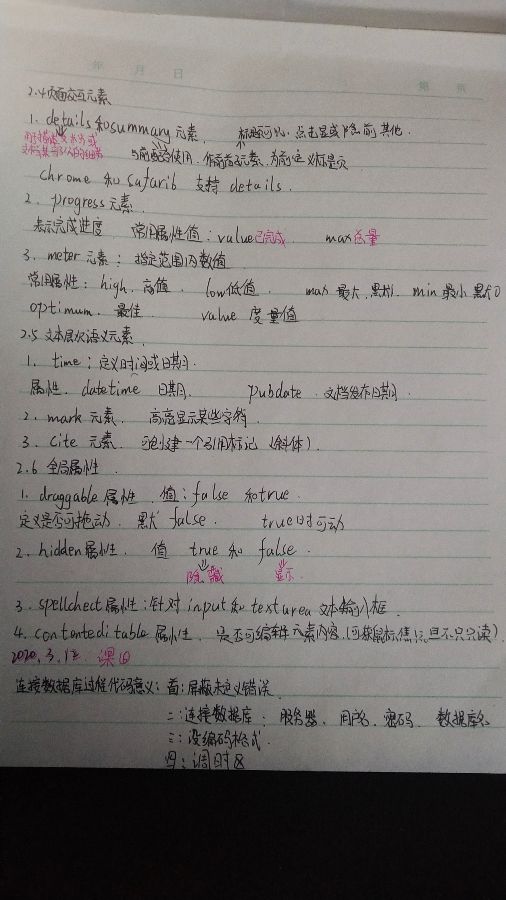 年 月 日
2.4页面交互元素
1. details和summary元素. 标题可见,点击显或隐前其他.
用于描述文本或
文档某个部分的细节
与前配合使用,作前首元素,为前定义标题
chrome 和 safarib 支持 details.
2. progress元素.
表示完成进度 常用属性值:value已完成 max总量
3. meter元素:指定范围内数值
常用属性:high.高值. low低值. max最大,默认1. min最小默认0
optimum.最佳 value 度量值
2.5 文本层次语义元素.
1. time:定义时间或日期.
属性.datetime 日期. pubdate.文档发布日期.
2. mark 元素. 高亮显示某些字符.
3. cite 元素. 可创建一个引用标记(斜体).
2.6 全局属性.
1. draggable属性.值:false 和true.
定义是否可拖动.默认false. true时可动
2. hidden属性. 值 true 和 false.
隐藏 显示.
3. spellchect属性:针对input和textarea文本输入框.
4. contenteditable属性.是否可编辑元素内容.(可获鼠标焦点且不只读).
2020.3.17. 课
连接数据库过程代码意义:首:屏蔽未定义错误.
二:连接数据库:服务器、用户名、密码、数据库名
三:设编码格式.
四:调时区